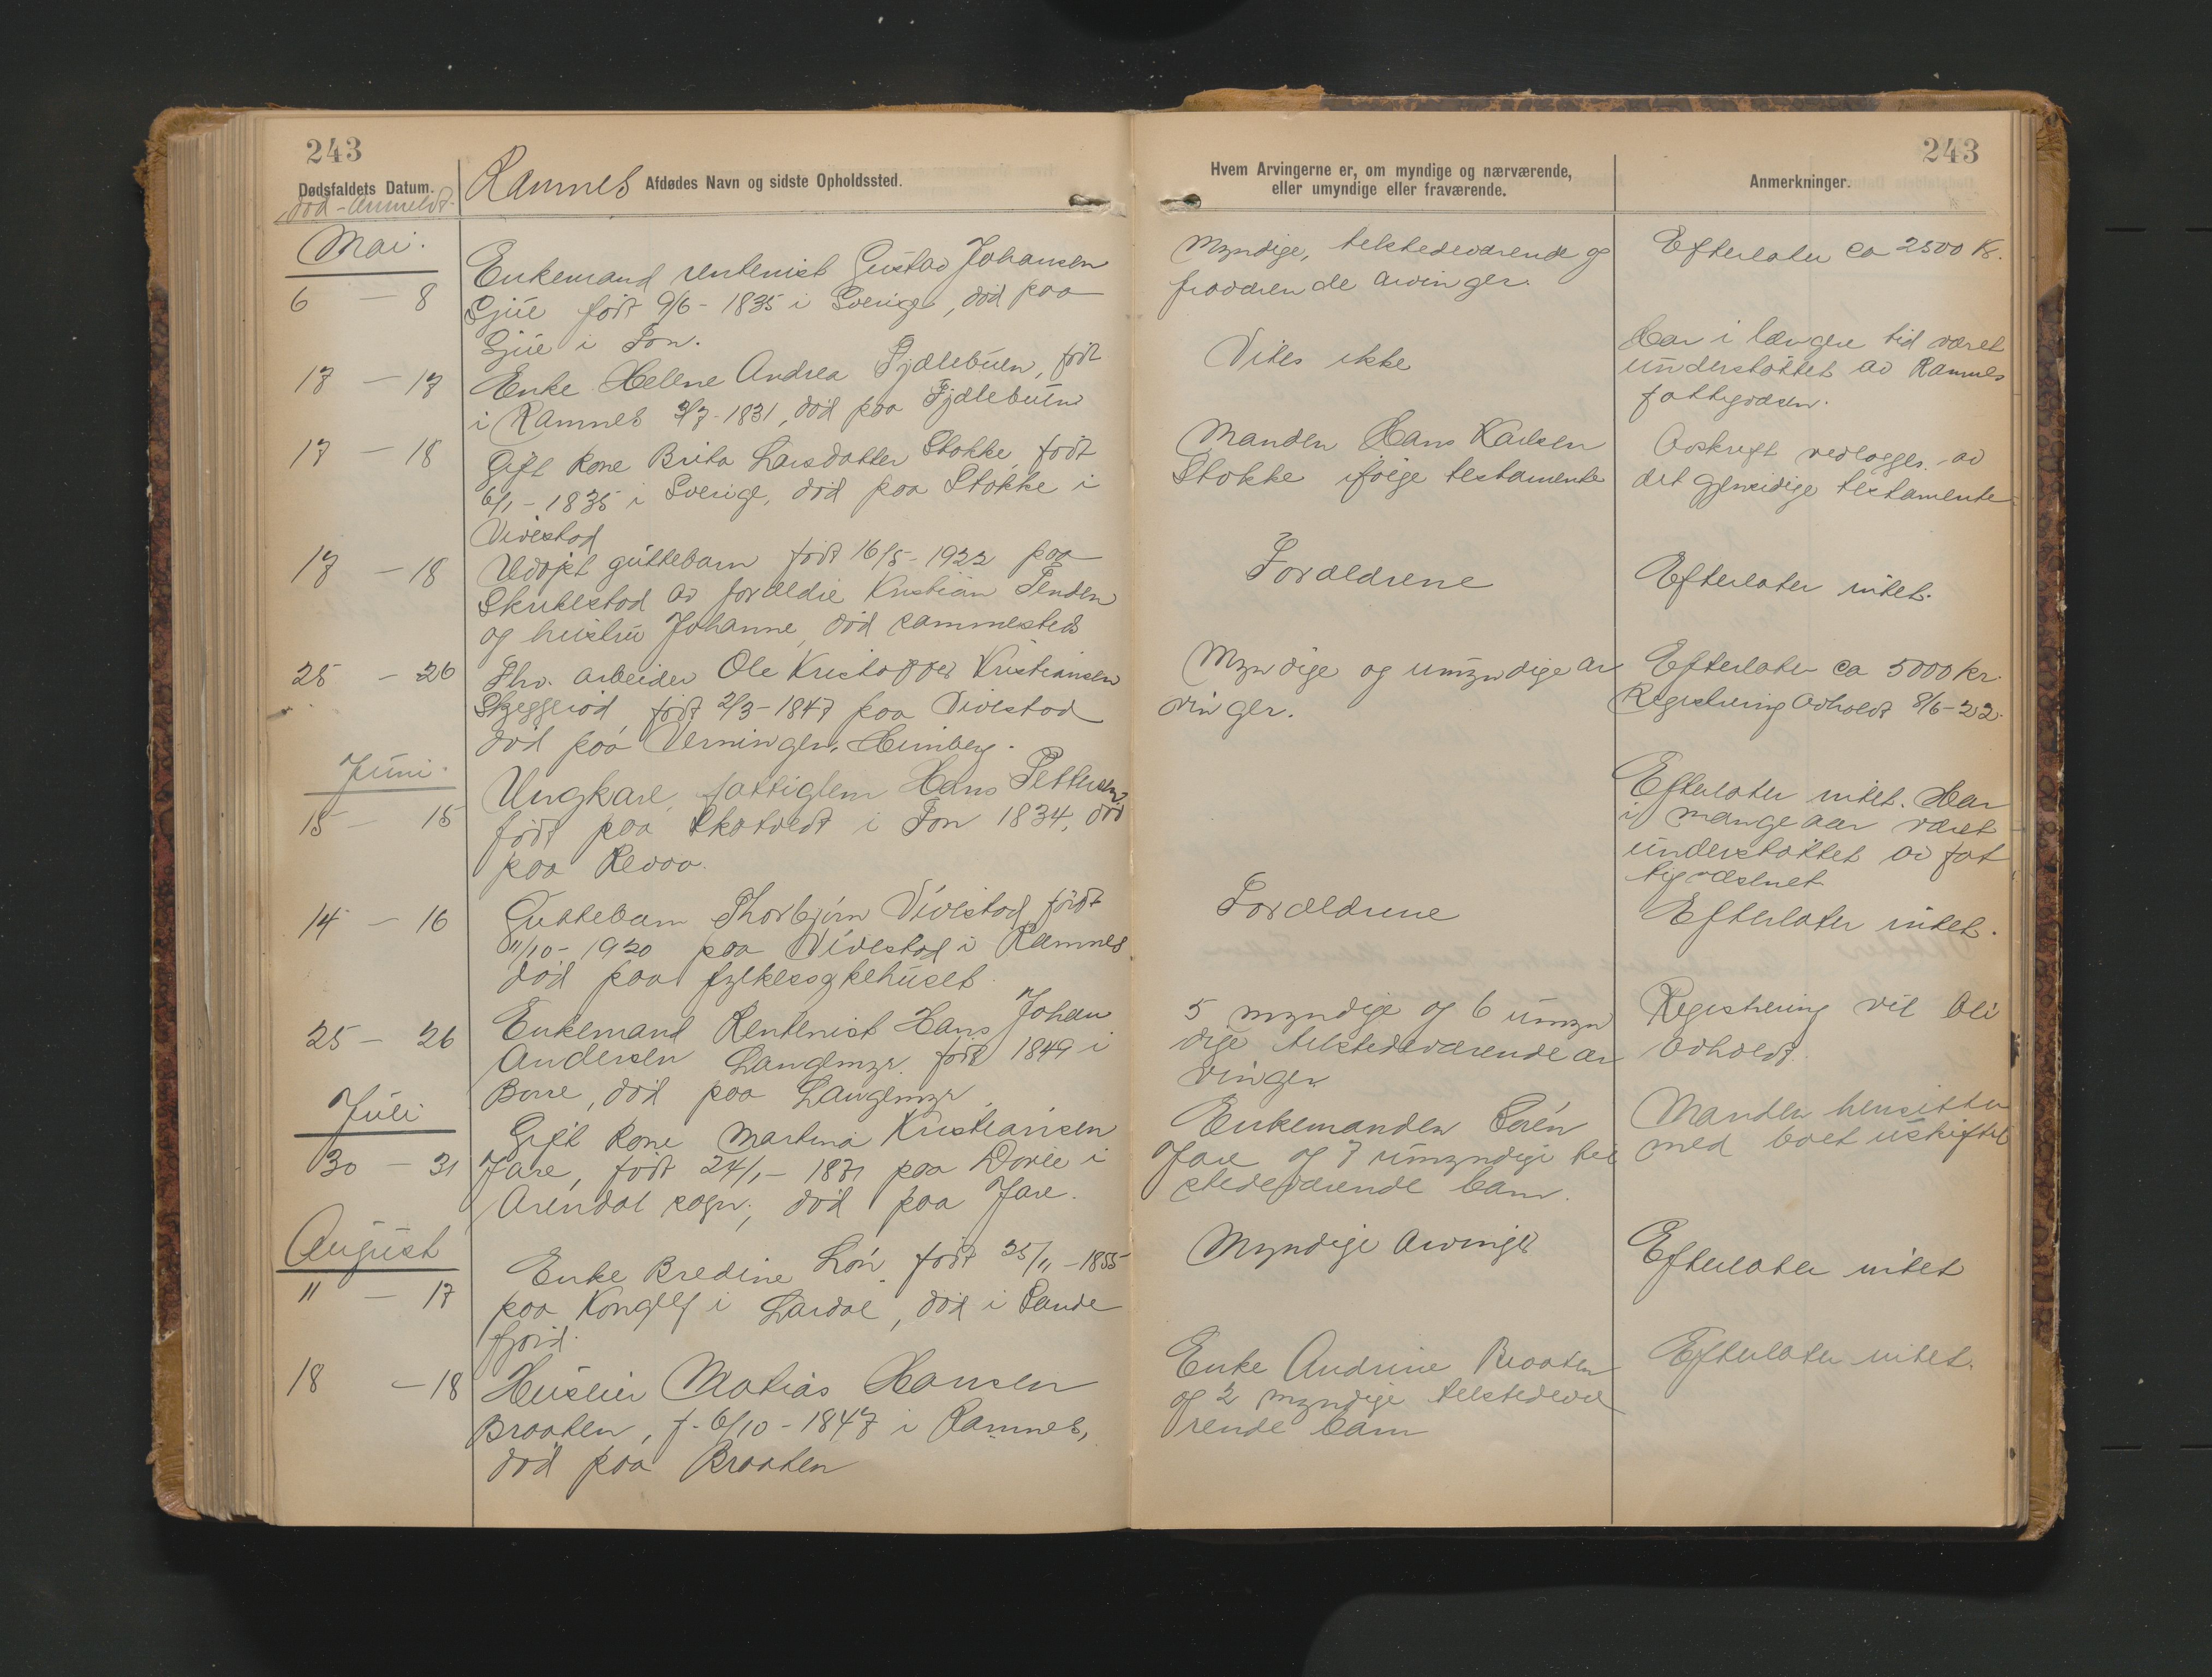 243
Dødsfaldets Datum.
Død - Anmeldt.
Ramnes Afdødes Navn og sidste Opholdssted.
Mai.
6 - 8
Enkemand rentenist Gustav Johansen
Gjue født 9/6 - 1835 i Sverige, død paa
Gjue i Fon.
17 - 17
Enke Helene Andrea Fjælebuen, født
i Ramnes 3/7 - 1831, død paa Fjælebuen
17 - 18
Gift Kone Brita Larsdatter Stokke, født
6/1 - 1835 i Sverige, død paa Stokke i
Vivestad
17 - 18
Udøpt guttebarn født 16/5 - 1922 paa
Skukestad av forældre Kristian Penden
og hustru Johanne, død sammesteds
25 - 26
Fhv. arbeider Ole Kristoffer Kristiansen
Skjeggerød, født 2/3 - 1847 paa Vivestad
død paa Verningen, Heimberg.
Juni.
15 - 15
Ungkarl, fattiglem Hans Pettersen
født paa Skatvedt i Fon 1834, død
paa Revaa.
14 - 16
Guttebarn Thorbjørn Vivestad, født
11/10 - 1920 paa Vivestad i Ramnes
død paa fylkessykehuset.
25 - 26
Enkemand Rentenist Hans Johan
Andersen Langemyr. født 1849 i
Borre, død paa Langemyr.
Juli
30 - 31
Gift Kone Martina Kristiansen
Jare, født 24/1 - 1871 paa Dovle i
Arendal sogn, død paa Jare.
August
11 - 17
Enke Bredine Løn, født 25/11 - 1855
paa Kongelf i Lardal, død i Sande
fjord.
18 - 18
Huseier Matias Hansen
Braaten, f. 6/10 - 1847 i Ramnes,
død paa Braaten
243
Hvem Arvingerne er, om myndige og nærværende,
eller umyndige eller fraværende.
Anmerkninger.
Myndige, tilstedeværende og
fraværende arvinger.
Efterlater ca 2500 Kr.
Vites ikke
Har i længere tid været
understøttet av Ramnes
fattigvæsen.
Manden Hans Karlsen
Stokke ifølge testamente
Avskrift vedlægges av
det gjensidige testamente
Forældrene
Efterlater intet.
Myndige og umyndige ar
vinger.
Efterlater ca 5000 kr.
Registrering avholdt 8/6 - 22.
Efterlater intet. Har
i mange aar været
understøttet av fat
tigvæsenet
Forældrene
Efterlater intet.
5 myndige og 6 umyn
dige tilstedeværende ar
vinger
Registrering vil bli
avholdt.
Enkemanden Sørén
Jare og 7 umyndige til
stedeværende barn.
Manden hensitter
med boet uskiftet
Myndige arvinger
Efterlater intet
Enke Andrine Braaten
og 2 myndige tilstedevæ
rende barn
Efterlater intet.